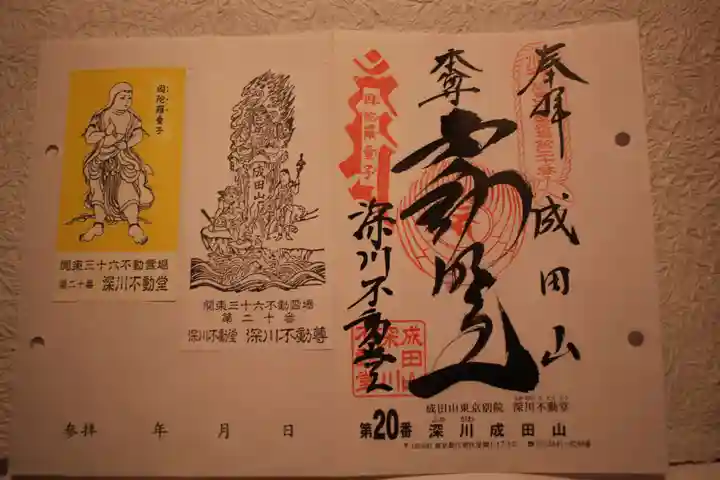 因陀羅童子
関東三十六不動霊場
第二十番 深川不動堂
成田山
関東三十六不動霊場
第二十番
深川不動堂 深川不動尊
参拝 年 月 日
奉拝 成田山
本尊
因陀羅童子
深川不動堂
成田山
深川
不動堂
成田山東京別院 深川不動堂
ふか がわ
第20番 深川成田山